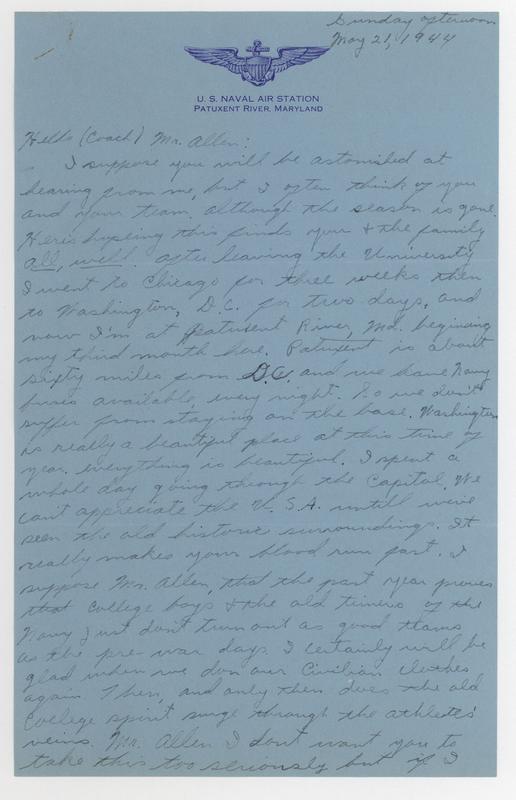 Sunday afternoon
May 21, 1944
U. S. NAVAL AIR STATION
PATUXENT RIVER, MARYLAND
Hello (Coach) Mr. Allen:
I suppose you will be astonished at
hearing from me, but I often think of you
and your team, although the season is gone.
Here's hopeing this finds your & the family
all, well. After leaving the University
I went to Chicago for three weeks then
to Washington, D.C. for two days, and
now I'm at Patuxent River, Md. begining
my third month here. Patuxent is about
sixty miles from D.C. and we have Navy
buses available, every night. So we don't
suffer from staying on the base. Washington
is really a beautiful place at this time of
year, everything is beautiful. I spent a
whole day going through the Capitol. We
can't appreciate the U.S.A. untill we've
seen the old historic surroundings. It
really makes your blood run fast. I
suppose Mr. Allen, that the past year proves
that College boys & the old timers of the
Navy just don't turn out as good teams
as the pre-war days. I certainly will be
glad when we don our Civilian clothes
again. Then, and only then does the old
College spirit surge through the athletes'
veins. Mr. Allen I don't want you to
take this too seriously but if I